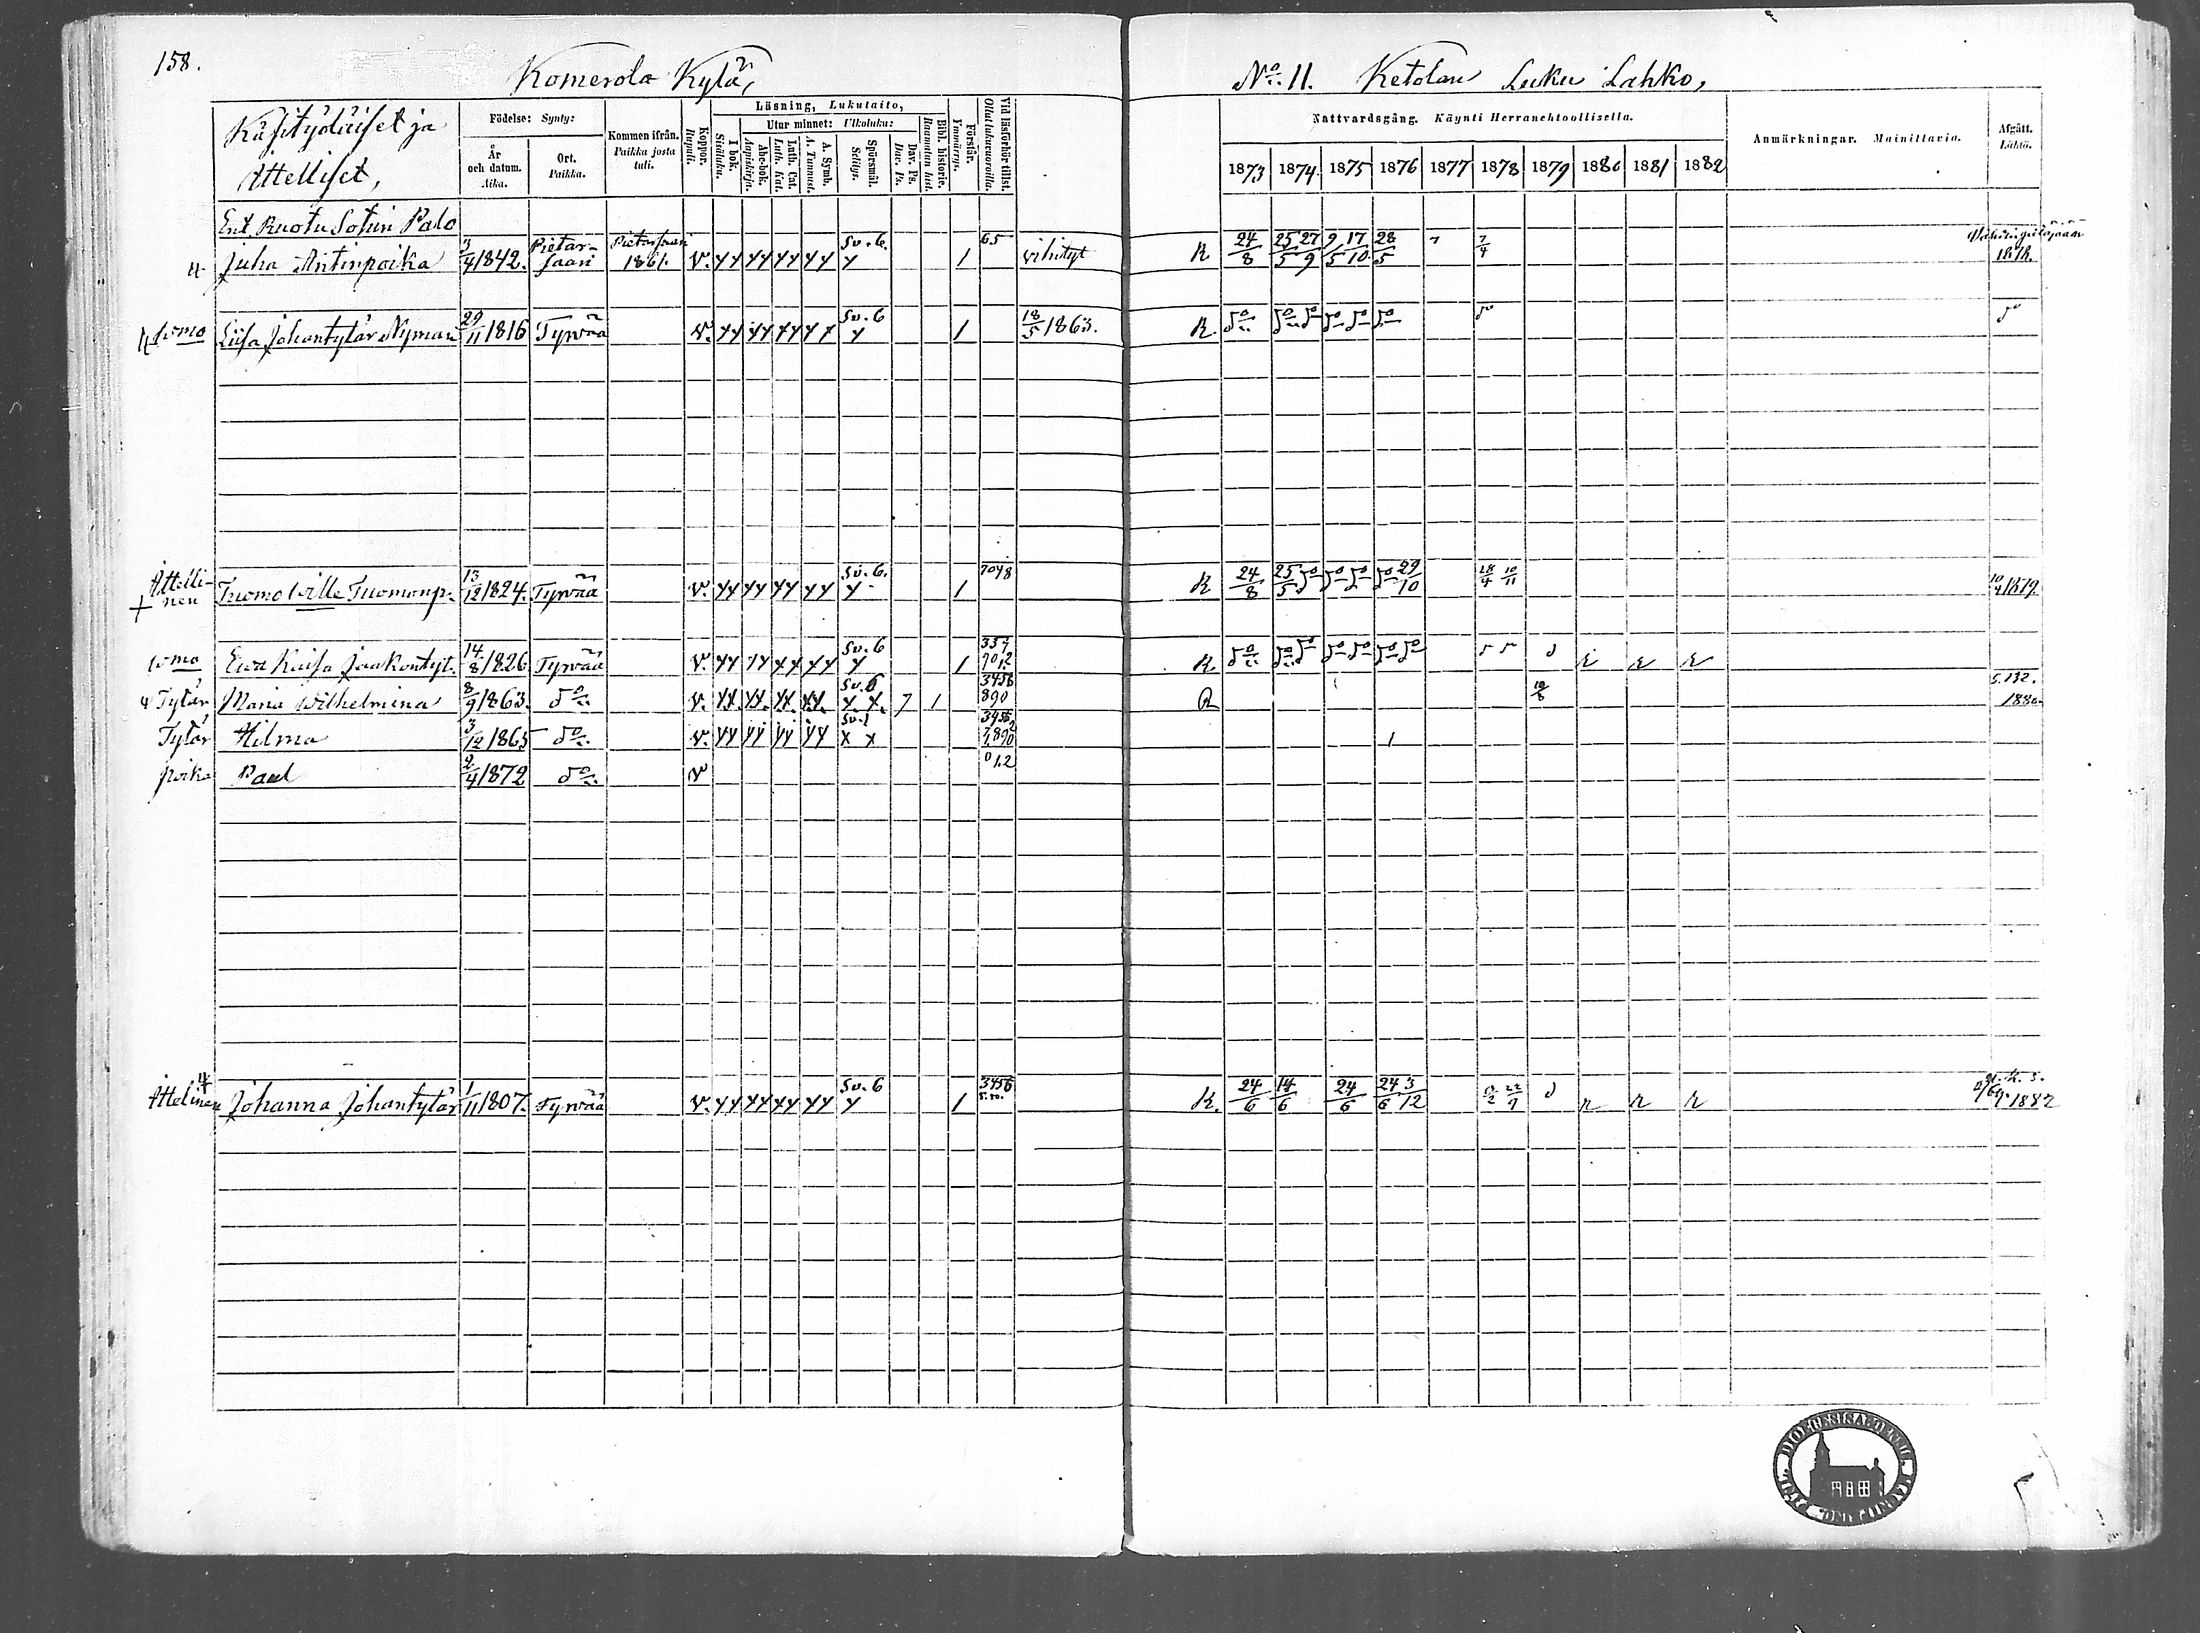 158.
Komerola Kylä,
No. 11. Ketolan Luku Lahko,
Käsityöläiset ja
Ittelliset,
Födelse: Synty:
År
och datum.
Aika.
Ort.
Paikka.
Kommen ifrån.
Paikka josta
tuli.
Koppor.
Rupuli.
Läsning, Lukutaito,
I bok.
Sisäluku.
Utur minnet: Ulkoluku:
Abc-bok.
Aapiskirja.
Luth. Cat.
Luth. Kat.
A. Symb.
A. Tunnust.
Spörsmål.
Selitys.
Dav. Ps.
Dav. Ps.
Bibl. historie.
Raamatun hist.
Förstår.
Ymmärrys.
Vid läsförhör tillst.
Ollut lukuvuoroilla.
Nattvardsgång. Käynti Herranehtoollisella.
1873 1874 1875 1876 1877 1878 1879 1880 1881 1882
Anmärkningar. Mainittavia.
Afgått.
Lähtö.
Ent. Ruotu Sotun Palo
Juha Antinpoika 3/4 1842. Pietar-
saari 1861. v. yy yy yy yy Sv. 6. y 1 65 vihityt R 24/8 25/5 27/9 9/5 17/10 28/5 7 7/4 1878.
vaimo Liisa Johantytär Nyman 29/11 1816 Tyrvää v. yy yy yy yy Sv. 6 y 1 18/5 1863. R. do do do do do do do do
Ittelli-
nen Tuomo Wille Tuomonp. 13/12 1824. Tyrvää v. yy yy yy yy Sv. 6. y 1 7048 R 24/8 25/5 do do do do 29/10 18/4 10/11 10/4 1879.
vaimo Ewa Kaisa Jaakontyt. 14/8 1826 Tyrvää v. yy yy yy yy Sv. 6 y 1 R. do do do do do do do
Tytär Maria Wilhelmina 8/9 1863. do v. yy. yy. yy. yy. Sv. 6 y. y. 7 1 3456
890 R 10/8 S. 132.
1880
Tytär Hilma 3/12 1865 do v. yy yy yy yy Sv. 1 x x 3456 1
poika Paul 2/4 1872 do v 012
Ittelinen Johanna Johantytär 1/11 1807. Tyrvää v. yy yy yy yy Sv. 6 y 1 3456 R. 24/6 14/6 24/6 24/6 3/12 d r r r 1882